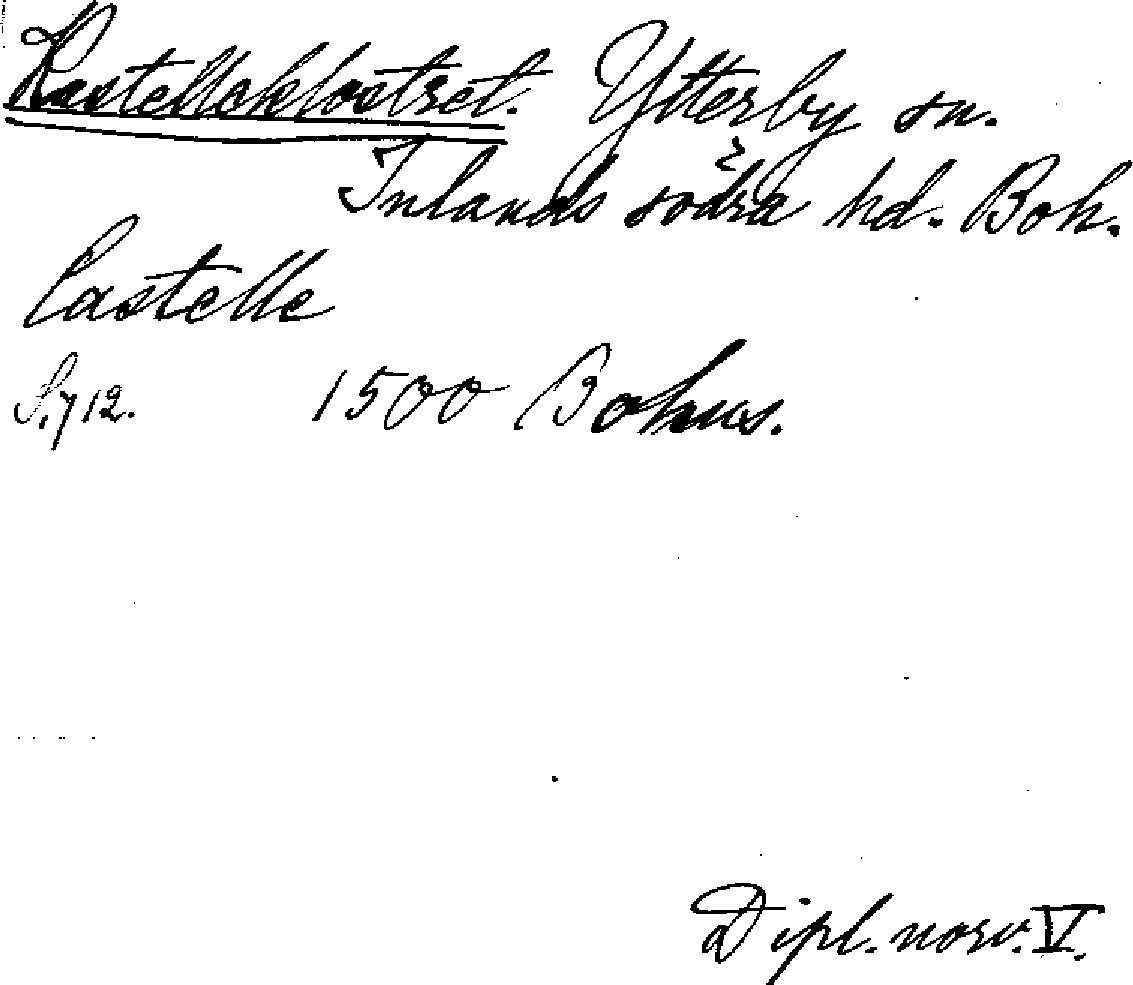 Kastelleklostret. Ytterby sn.
Inlands södra hd. Boh.
Castelle
S. 712. 1500 Bohus.
Dipl. norv. V.